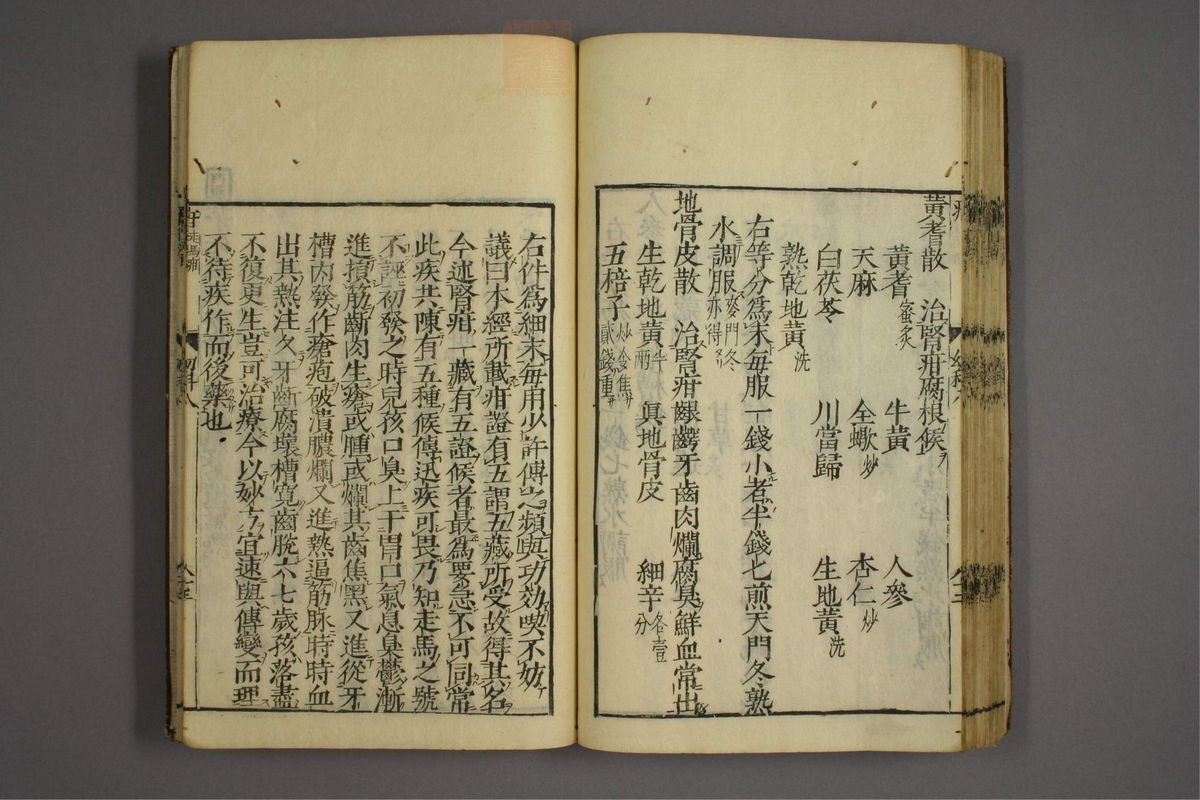 黃耆散　治腎疳腐根候
黃耆蜜炙　牛黃　人參
天麻　全蠍炒　杏仁炒
白茯苓　川當歸　生地黃洗
熟乾地黃洗
右等分爲末每服一錢小者半錢匕煎天門冬熟
水調服麥門冬亦得
地骨皮散　治腎疳齦齶牙齒肉爛腐臭鮮血常出
生乾地黃半兩　眞地骨皮　細辛各壹分
五棓子炒令焦貳錢重
右件爲細末每用少許傅之頻與功効喫不妨
議曰本經所載疳證有五謂五藏所受故得其名
今述腎疳一藏有五證候者最爲要急不可同常
此疾共陳有五種候傳迅疾可畏乃知走馬之號
不誣初發之時兒孩口臭上干胃口氣息臭鬱漸
進損筋齗肉生瘡或腫或爛其齒焦黑又進從牙
槽內發作瘡疱破潰膿爛又進熱逼筋脉時時血
出其熱注久牙齗腐壞槽寬齒脫六七歲孩落盡
不復更生豈可治療今以妙方宜速與傳變而理
不待疾作而後藥也